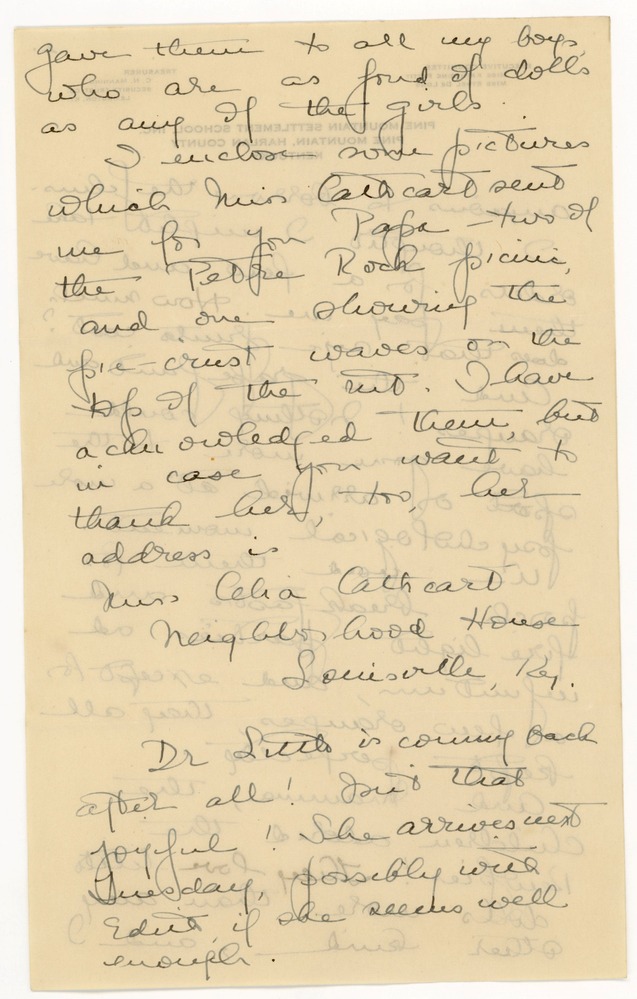 gave them to all my boys,
who are as fond of dolls
as any of the girls.
I enclose some pictures
which Miss Cathcart sent
me for you Papa - two of
the Rock picnic,
and one showing the
pie-crust waves on the
top of the . I have
acknowledged them, but
in case you want to
thank her, too, her
address is
Miss Celia Cathcart
Neighborhood House
Louisville, Ky.
Dr Little is coming back
after all! Isn't that
joyful! She arrives next
Tuesday, possibly with
Edith, if she seems well
enough.